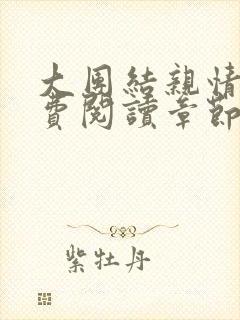 大團結親情
費閱讀章節
紫牡丹